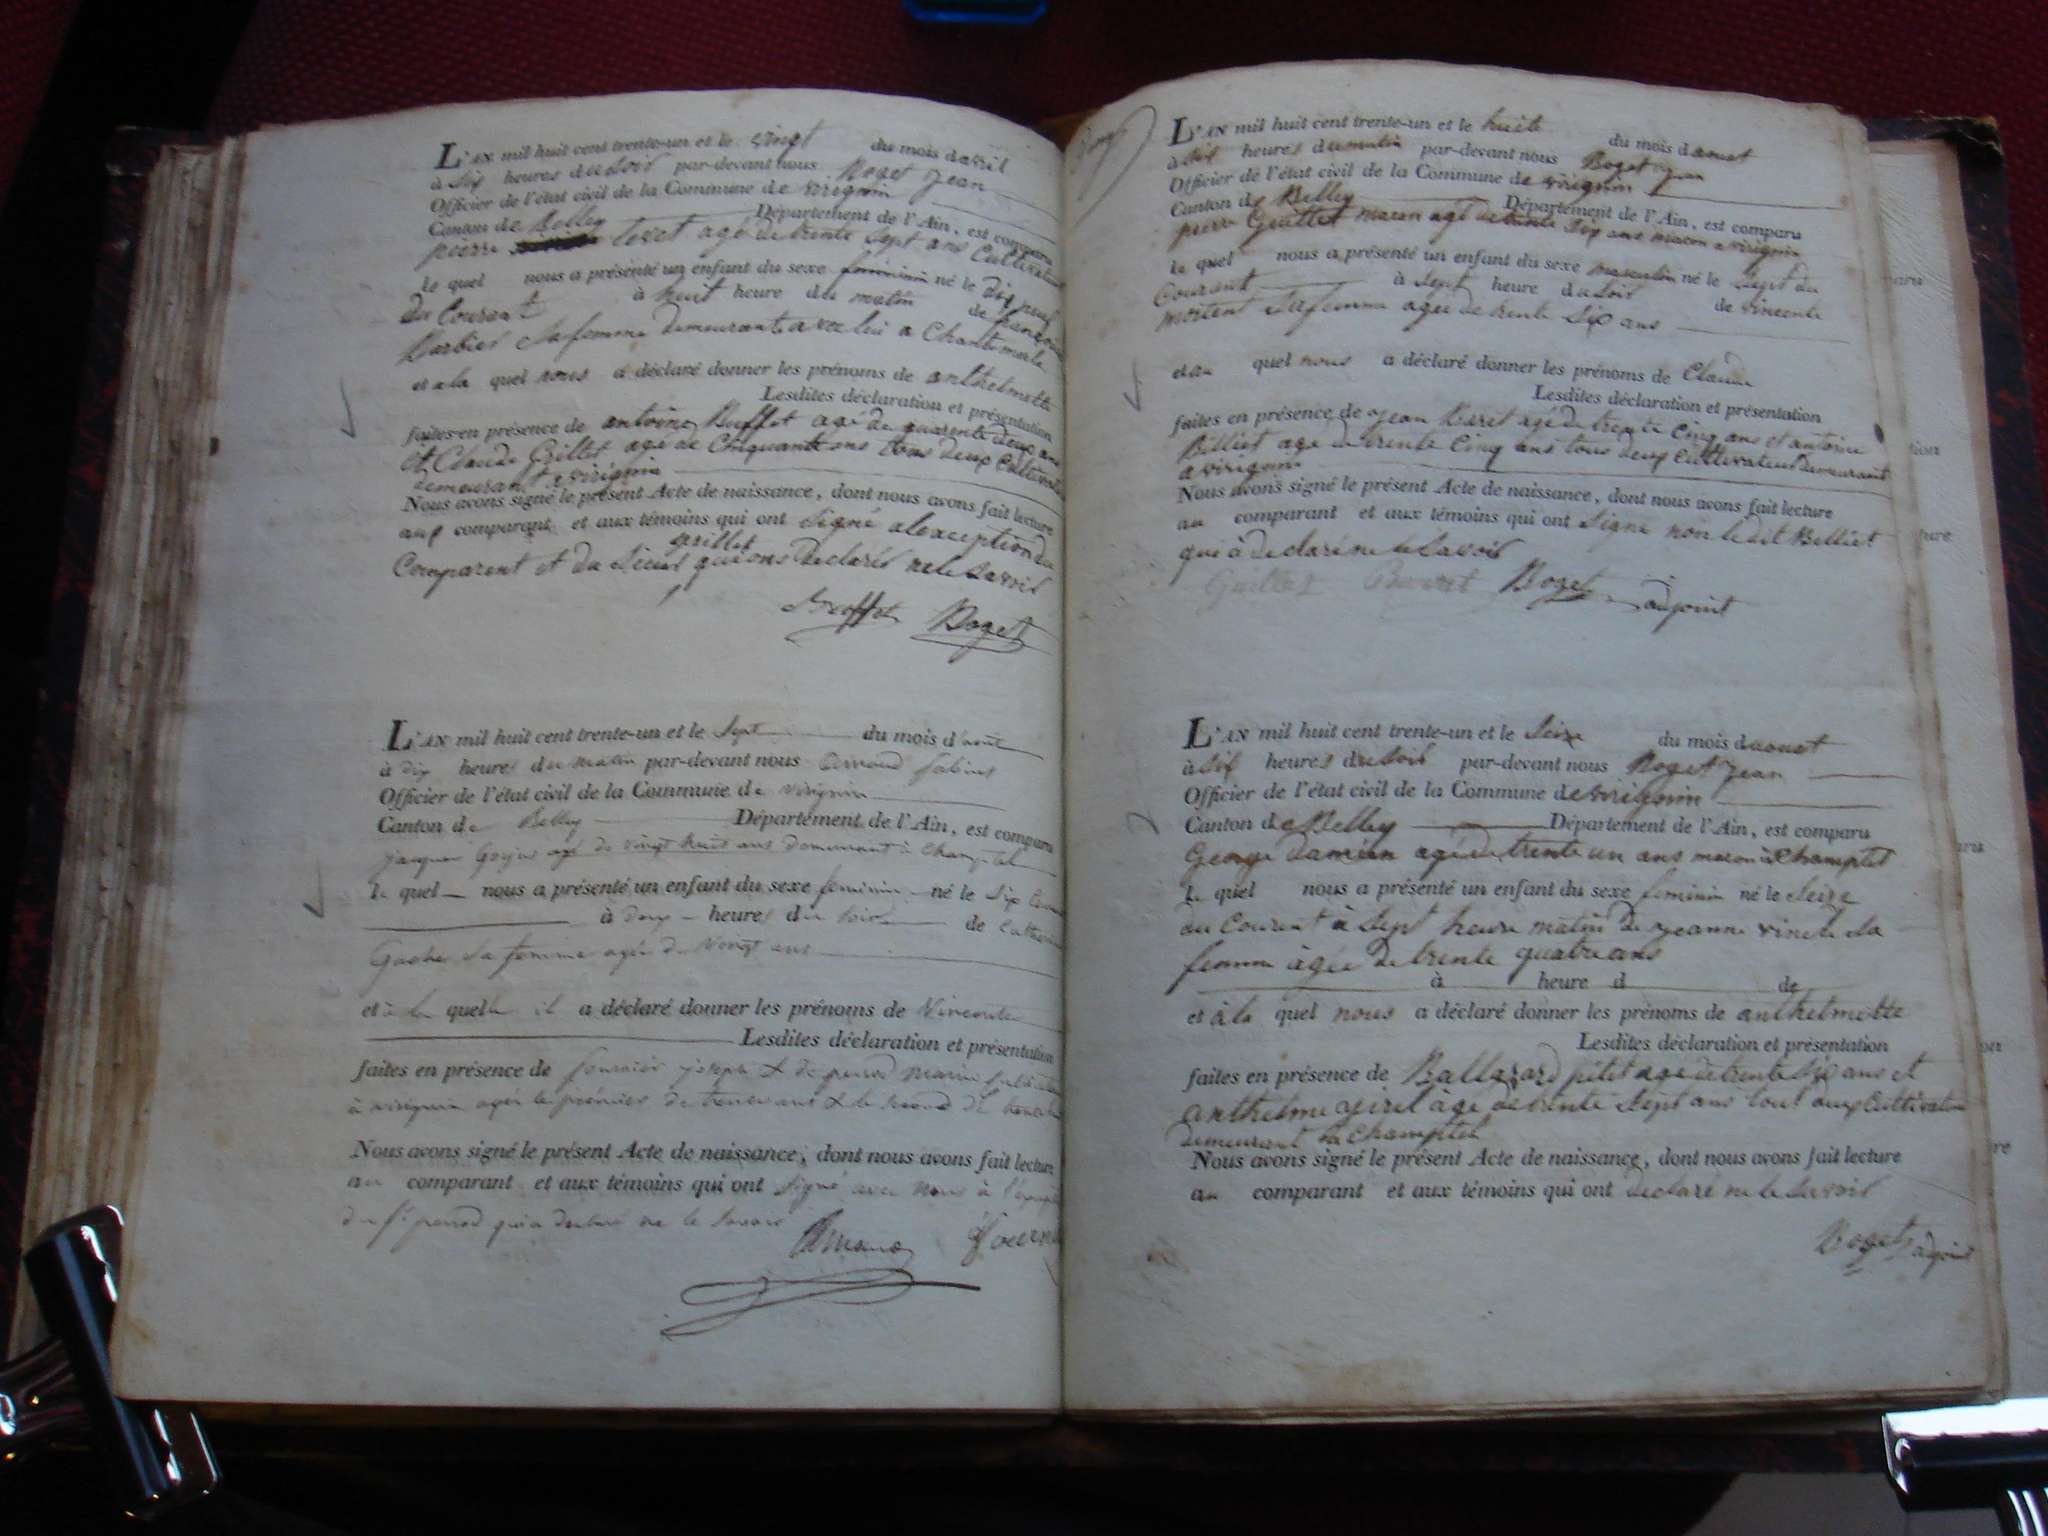 L'AN mil huit cent trente-un et le vingt du mois d'avril
à six heures du soir par-devant nous Boget Jean
Officier de l'état civil de la Commune de virignin
Canton de Belley Département de l'Ain, est comparu
pierre tevet agé de trente sept ans Cultivateur
le quel nous a présenté un enfant du sexe feminin né le dix neuf
du Courant à huit heure du matin de françoise
Barbier sa femme demeurante avec lui a Chantemerle
et a la quel nous a déclaré donner les prénoms de anthelmette
Lesdites déclaration et présentation
faites en présence de antoine Buffet agé de quarente deux ans
et Claude Grillet agé de Cinquante ans tous deux Cultivateur
demeurant a virignin
Nous avons signé le présent Acte de naissance, dont nous avons fait lecture
aux comparant et aux témoins qui ont signé alexception du
Comparent et du Sieur grillet qui ons declarés ne le savoir
Buffet Boget
L'AN mil huit cent trente-un et le Sept du mois d'août
à dix heures du matin par-devant nous
Officier de l'état civil de la Commune de virignin
Canton de Belley Département de l'Ain, est comparu
jacques Gojus agé de vingt huit ans demeurant à Champtel
le quel nous a présenté un enfant du sexe feminin né le six Courant
à deux heures du soir de Catherine
Gache sa femme agée de Vingt ans
et à la quelle il a déclaré donner les prénoms de Vincente
Lesdites déclaration et présentation
faites en présence de fournier joseph & de perrod marin
à virignin agés le premier de trente ans & le second de
Nous avons signé le présent Acte de naissance, dont nous avons fait lecture
au comparant et aux témoins qui ont signé avec nous à l'exception
du Sr perrod qui a déclaré ne le savoir
L'AN mil huit cent trente-un et le huite du mois d aoust
à six heures du matin par-devant nous Boget Jean
Officier de l'état civil de la Commune de virignin
Canton de Belley Département de l'Ain, est comparu
pierre Guillet macon agé de trente six ans macon a virignin
le quel nous a présenté un enfant du sexe masculin né le Sept du
Courant à sept heure du soir de vincente
mortent sa femme agée de trente six ans
et au quel nous a déclaré donner les prénoms de Claude
Lesdites déclaration et présentation
faites en présence de jean Baret agé de trente cinq ans et antoine
Billiet agé de trente Cinq ans tous deux Cultivateur demeurant
a virignin
Nous avons signé le présent Acte de naissance, dont nous avons fait lecture
au comparant et aux témoins qui ont signe non ledit Belliet
qui à declaré ne le savoir
Guillet Boget adjoint
L'AN mil huit cent trente-un et le Seize du mois d aoust
à six heures du soir par-devant nous Boget Jean
Officier de l'état civil de la Commune de virignin
Canton de Belley Département de l'Ain, est comparu
George damien agé de trente un ans macon à Champtel
le quel nous a présenté un enfant du sexe feminin né le Seize
du Courent à Sept heure matin de jeanne vincete sa
femme àgée de trente quatre ans
à heure d de
et à la quel nous a déclaré donner les prénoms de anthelmette
Lesdites déclaration et présentation
faites en présence de Ballazard petit agé de trente six ans et
anthelme àgé de trente sept ans tout deux Cultivateur
demeurant à Champtel
Nous avons signé le présent Acte de naissance, dont nous avons fait lecture
au comparant et aux témoins qui ont declaré ne le savoir
Boget adjoint